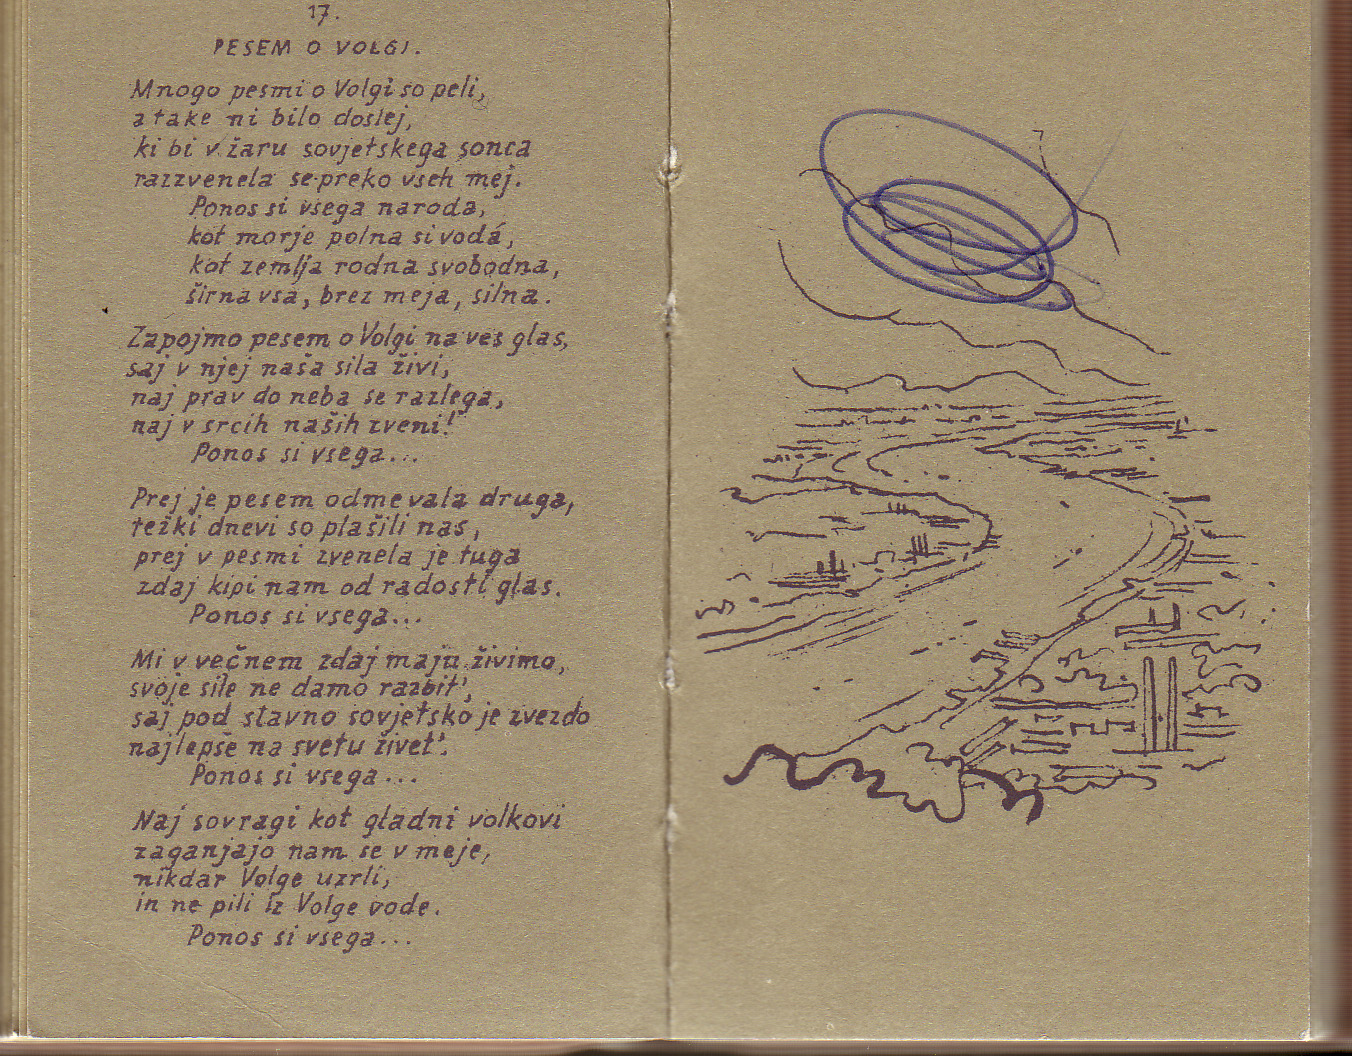 17.
PESEM O VOLGI.
Mnogo pesmi o Volgi so peli,
a take ni bilo doslej,
ki bi v žaru sovjetskega sonca
razzvenela se preko vseh mej.
Ponos si vsega naroda,
kot morje polna si vodá,
kot zemlja rodna svobodna,
širna vsa, brez meja, silna.
Zapojmo pesem o Volgi na ves glas,
saj v njej naša sila živi,
naj prav do neba se razlega,
naj v srcih naših zveni!
Ponos si vsega...
Prej je pesem odmevala druga,
težki dnevi so plašili nas,
prej v pesmi zvenela je tuga
zdaj kipi nam od radosti glas.
Ponos si vsega...
Mi v večnem zdaj maju živimo,
svoje sile ne damo razbit',
saj pod slavno sovjetsko je zvezdo
najlepše na svetu živet'.
Ponos si vsega...
Naj sovragi kot gladni volkovi
zaganjajo nam se v meje,
nikdar Volge uzrli,
in ne pili iz Volge vode.
Ponos si vsega...